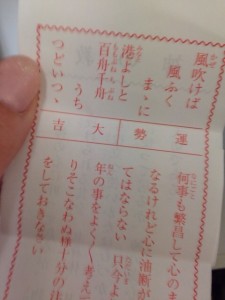 風吹けば
風ふく
まゝに
港よしと
百舟千舟
うち
つどいつゝ
運勢
大吉
何事も繁昌して心のまゝ
なるけれど心に油断が
てはならない 只今よ
年の事をよくよく考えて
りそこなわぬ様十分の
をしておきなさい